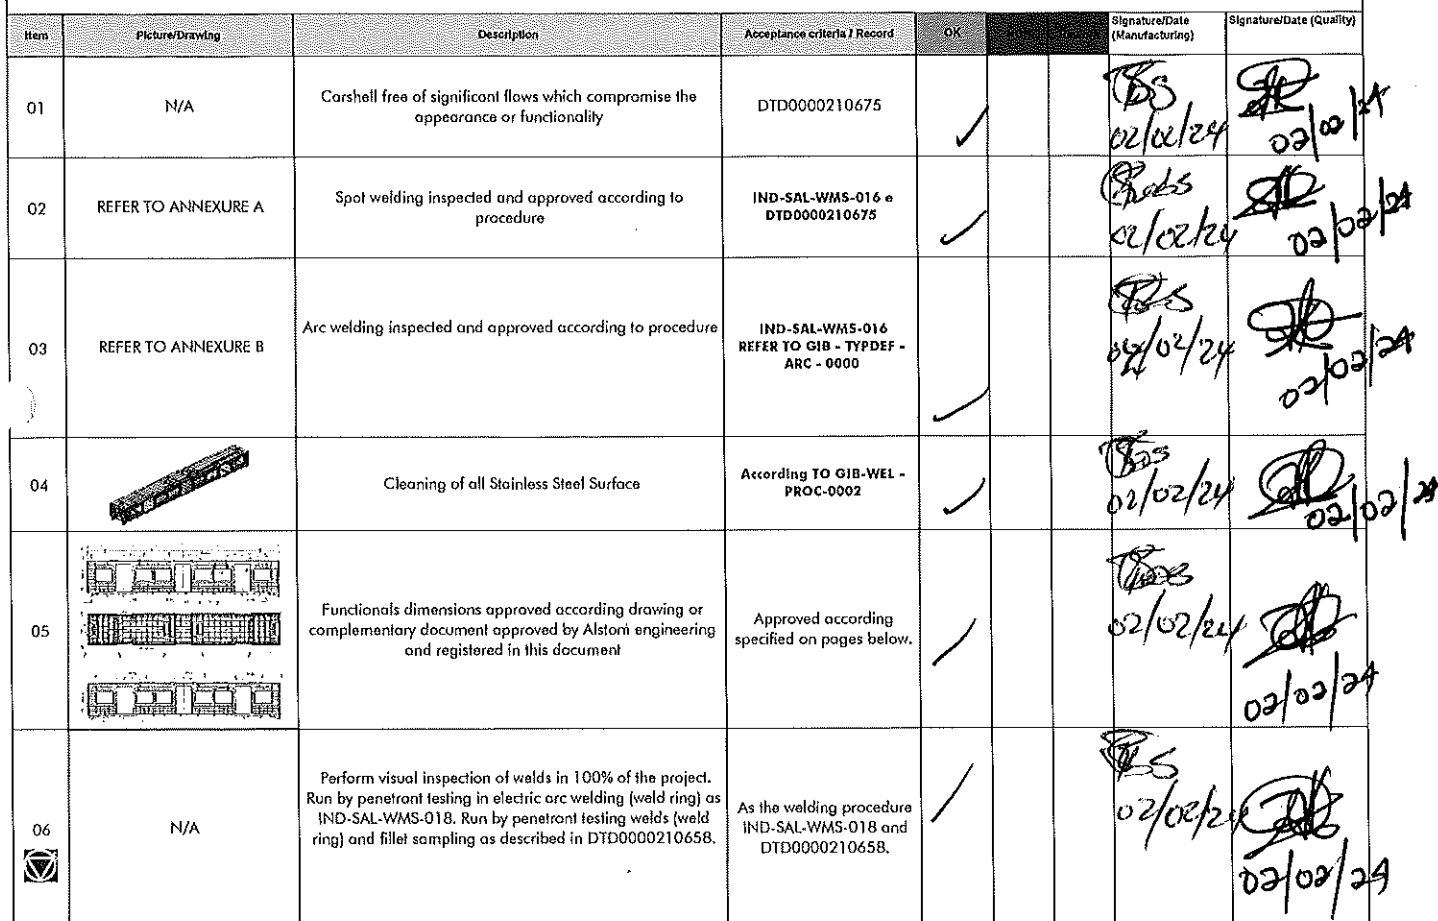 Item Picture/Drawing Description Acceptance criteria / Record OK Signature/Date (Manufacturing) Signature/Date (Quality)
01 N/A Carshell free of significant flows which compromise the
appearance or functionality
DTD0000210675
02/02/24
02/02/24
02 REFER TO ANNEXURE A Spot welding inspected and approved according to
procedure
IND-SAL-WMS-016 e
DTD0000210675
02/02/24
02/02/24
03 REFER TO ANNEXURE B Arc welding inspected and approved according to procedure
IND-SAL-WMS-016
REFER TO GIB - TYPDEF -
ARC - 0000
02/02/24
02/02/24
04 Cleaning of all Stainless Steel Surface
According TO GIB-WEL -
PROC-0002
02/02/24
02/02/24
05 Functionals dimensions approved according drawing or
complementary document approved by Alstom engineering
and registered in this document
Approved according
specified on pages below.
02/02/24
02/02/24
06 N/A Perform visual inspection of welds in 100% of the project.
Run by penetrant testing in electric arc welding (weld ring) as
IND-SAL-WMS-018. Run by penetrant testing welds (weld
ring) and fillet sampling as described in DTD0000210658.
As the welding procedure
IND-SAL-WMS-018 and
DTD0000210658.
02/02/24
02/02/24